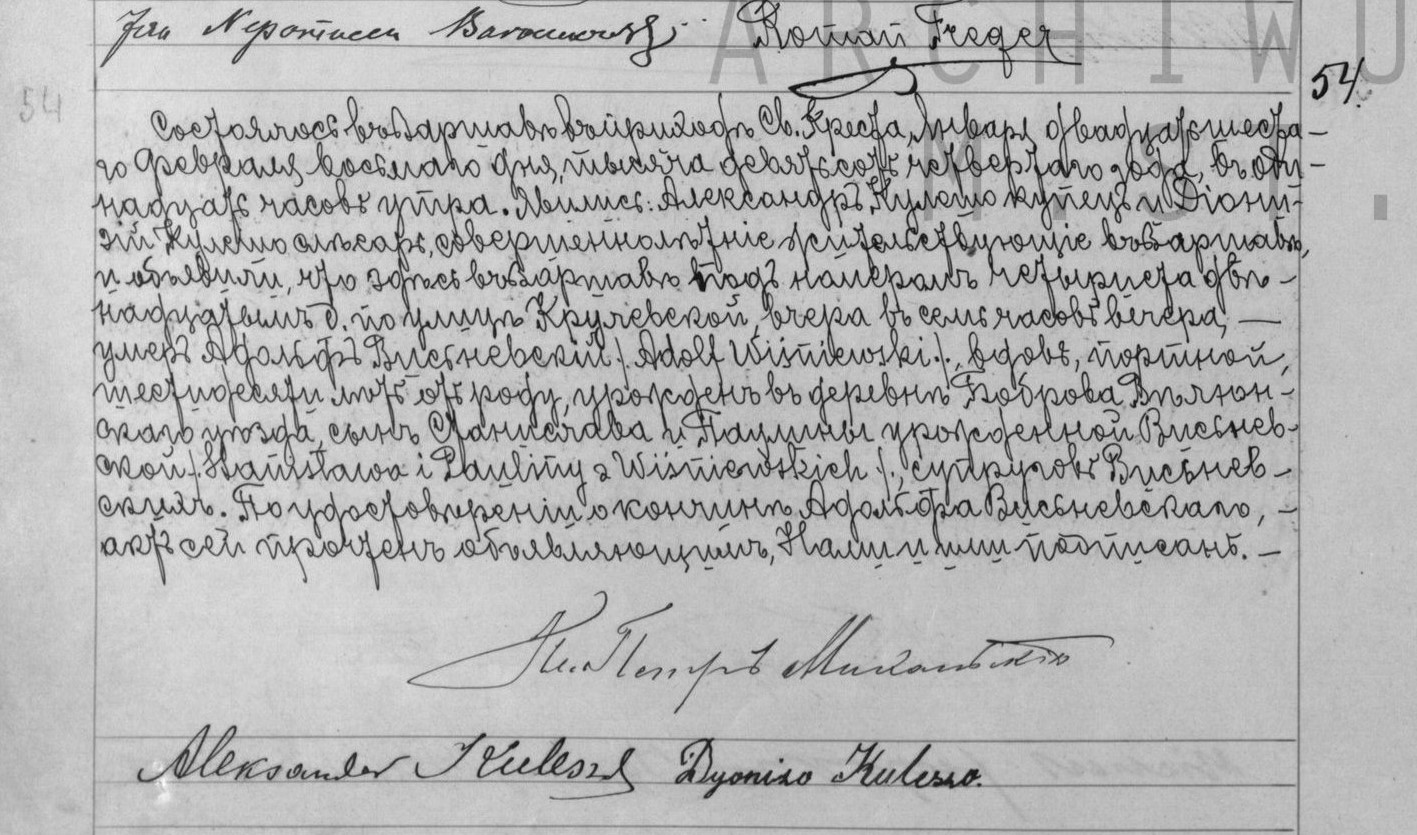 Jan Nepomucen Roman Freger
ARCHIWU
54
54.
M. ST.
Состоялось въ Варшавѣ въ приходѣ Св. Креста, Января двадцать шеста-
го Февраля восьмаго дня, тысяча девятьсотъ четвертаго года, въ оди-
надцать часовъ утра. Явились: Александръ Кулешо купецъ и Діони-
зій Кулешо слѣсарь, совершеннолѣтніе жительствующіе въ Варшавѣ,
и объявили, что здѣсь въ Варшавѣ подъ номеромъ четыриста двѣ-
надцатымъ д. по улицѣ Кручевской, вчера въ семь часовъ вечера, —
умеръ Адольфъ Висьневскій /: Adolf Wiśniewski :/, вдовъ, портной,
шестидесяти лѣтъ отъ роду, урожденъ въ деревнѣ Боброва Вѣлюн-
скаго уѣзда, сынъ Станислава и Паулины урожденной Висьнев-
ской /: Stanisława i Pauliny z Wiśniewskich :/, супруговъ Висьнев-
скихъ. По удостовѣреніи о кончинѣ Адольфа Висьневскаго, —
актъ сей прочтенъ объявляющимъ, Нами и ими подписанъ. —
Кс. Петръ
Aleksander Kulesza Dyonizo Kulesza.